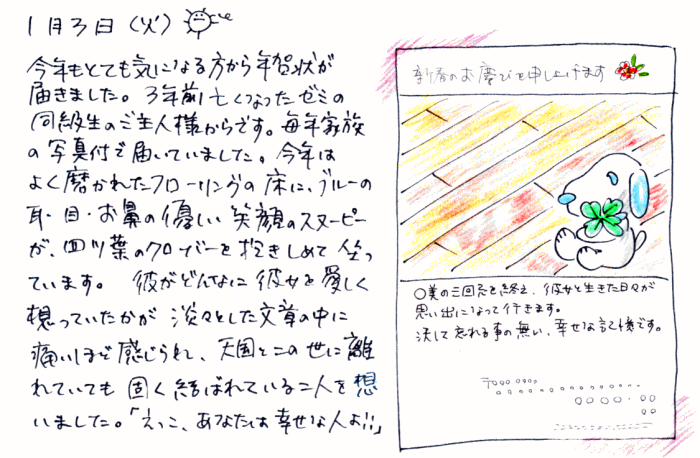 1月3日(火)
今年もとても気になる方から年賀状が
届きました。3年前亡くなったゼミの
同級生のご主人様からです。毎年家族
の写真付で届いていました。今年は
よく磨かれたフローリングの床に、ブルーの
耳・目・お鼻の優しい笑顔のスヌーピー
が、四ツ葉のクローバーを抱きしめて坐っ
ています。 彼がどんなに彼女を愛しく
想っていたかが 淡々とした文章の中に
痛いほど感じられ、天国とこの世に離
れていても 固く結ばれている二人を想
いました。「えっこ、あなたは幸せな人よ!!」
新春のお慶びを申し上げます
〇美の三回忌を終え、彼女と生きた日々が
思い出になって行きます。
決して忘れる事の無い、幸せな記憶です。